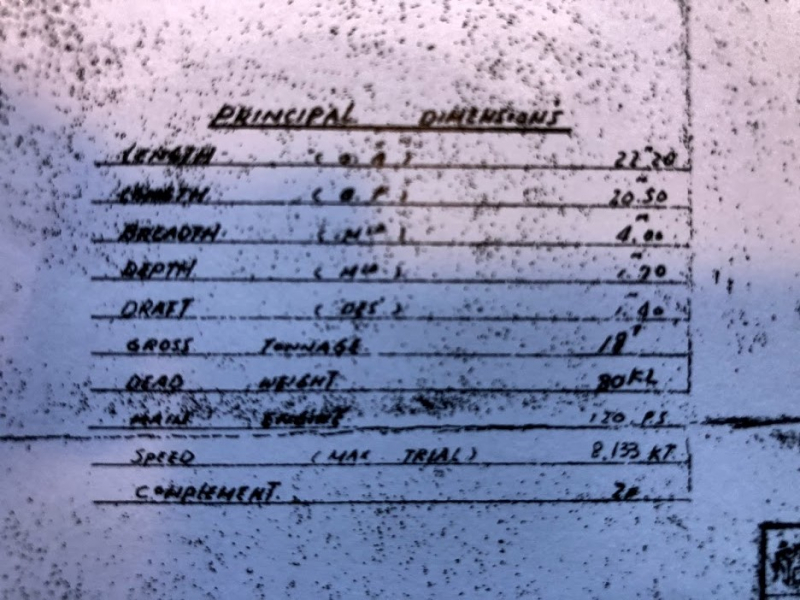 PRINCIPAL DIMENSIONS
LENGTH (O.A) 22.m20
LENGTH (O.P) 20.m50
BREADTH (MLD) 4.m00
DEPTH (MLD) 1.m70
DRAFT (DES) 1.m40
GROSS TONNAGE 18T
DEAD WEIGHT 80KL
MAIN ENGINE 120 PS
SPEED (MAX TRIAL) 8.133 KT
COMPLEMENT 2P